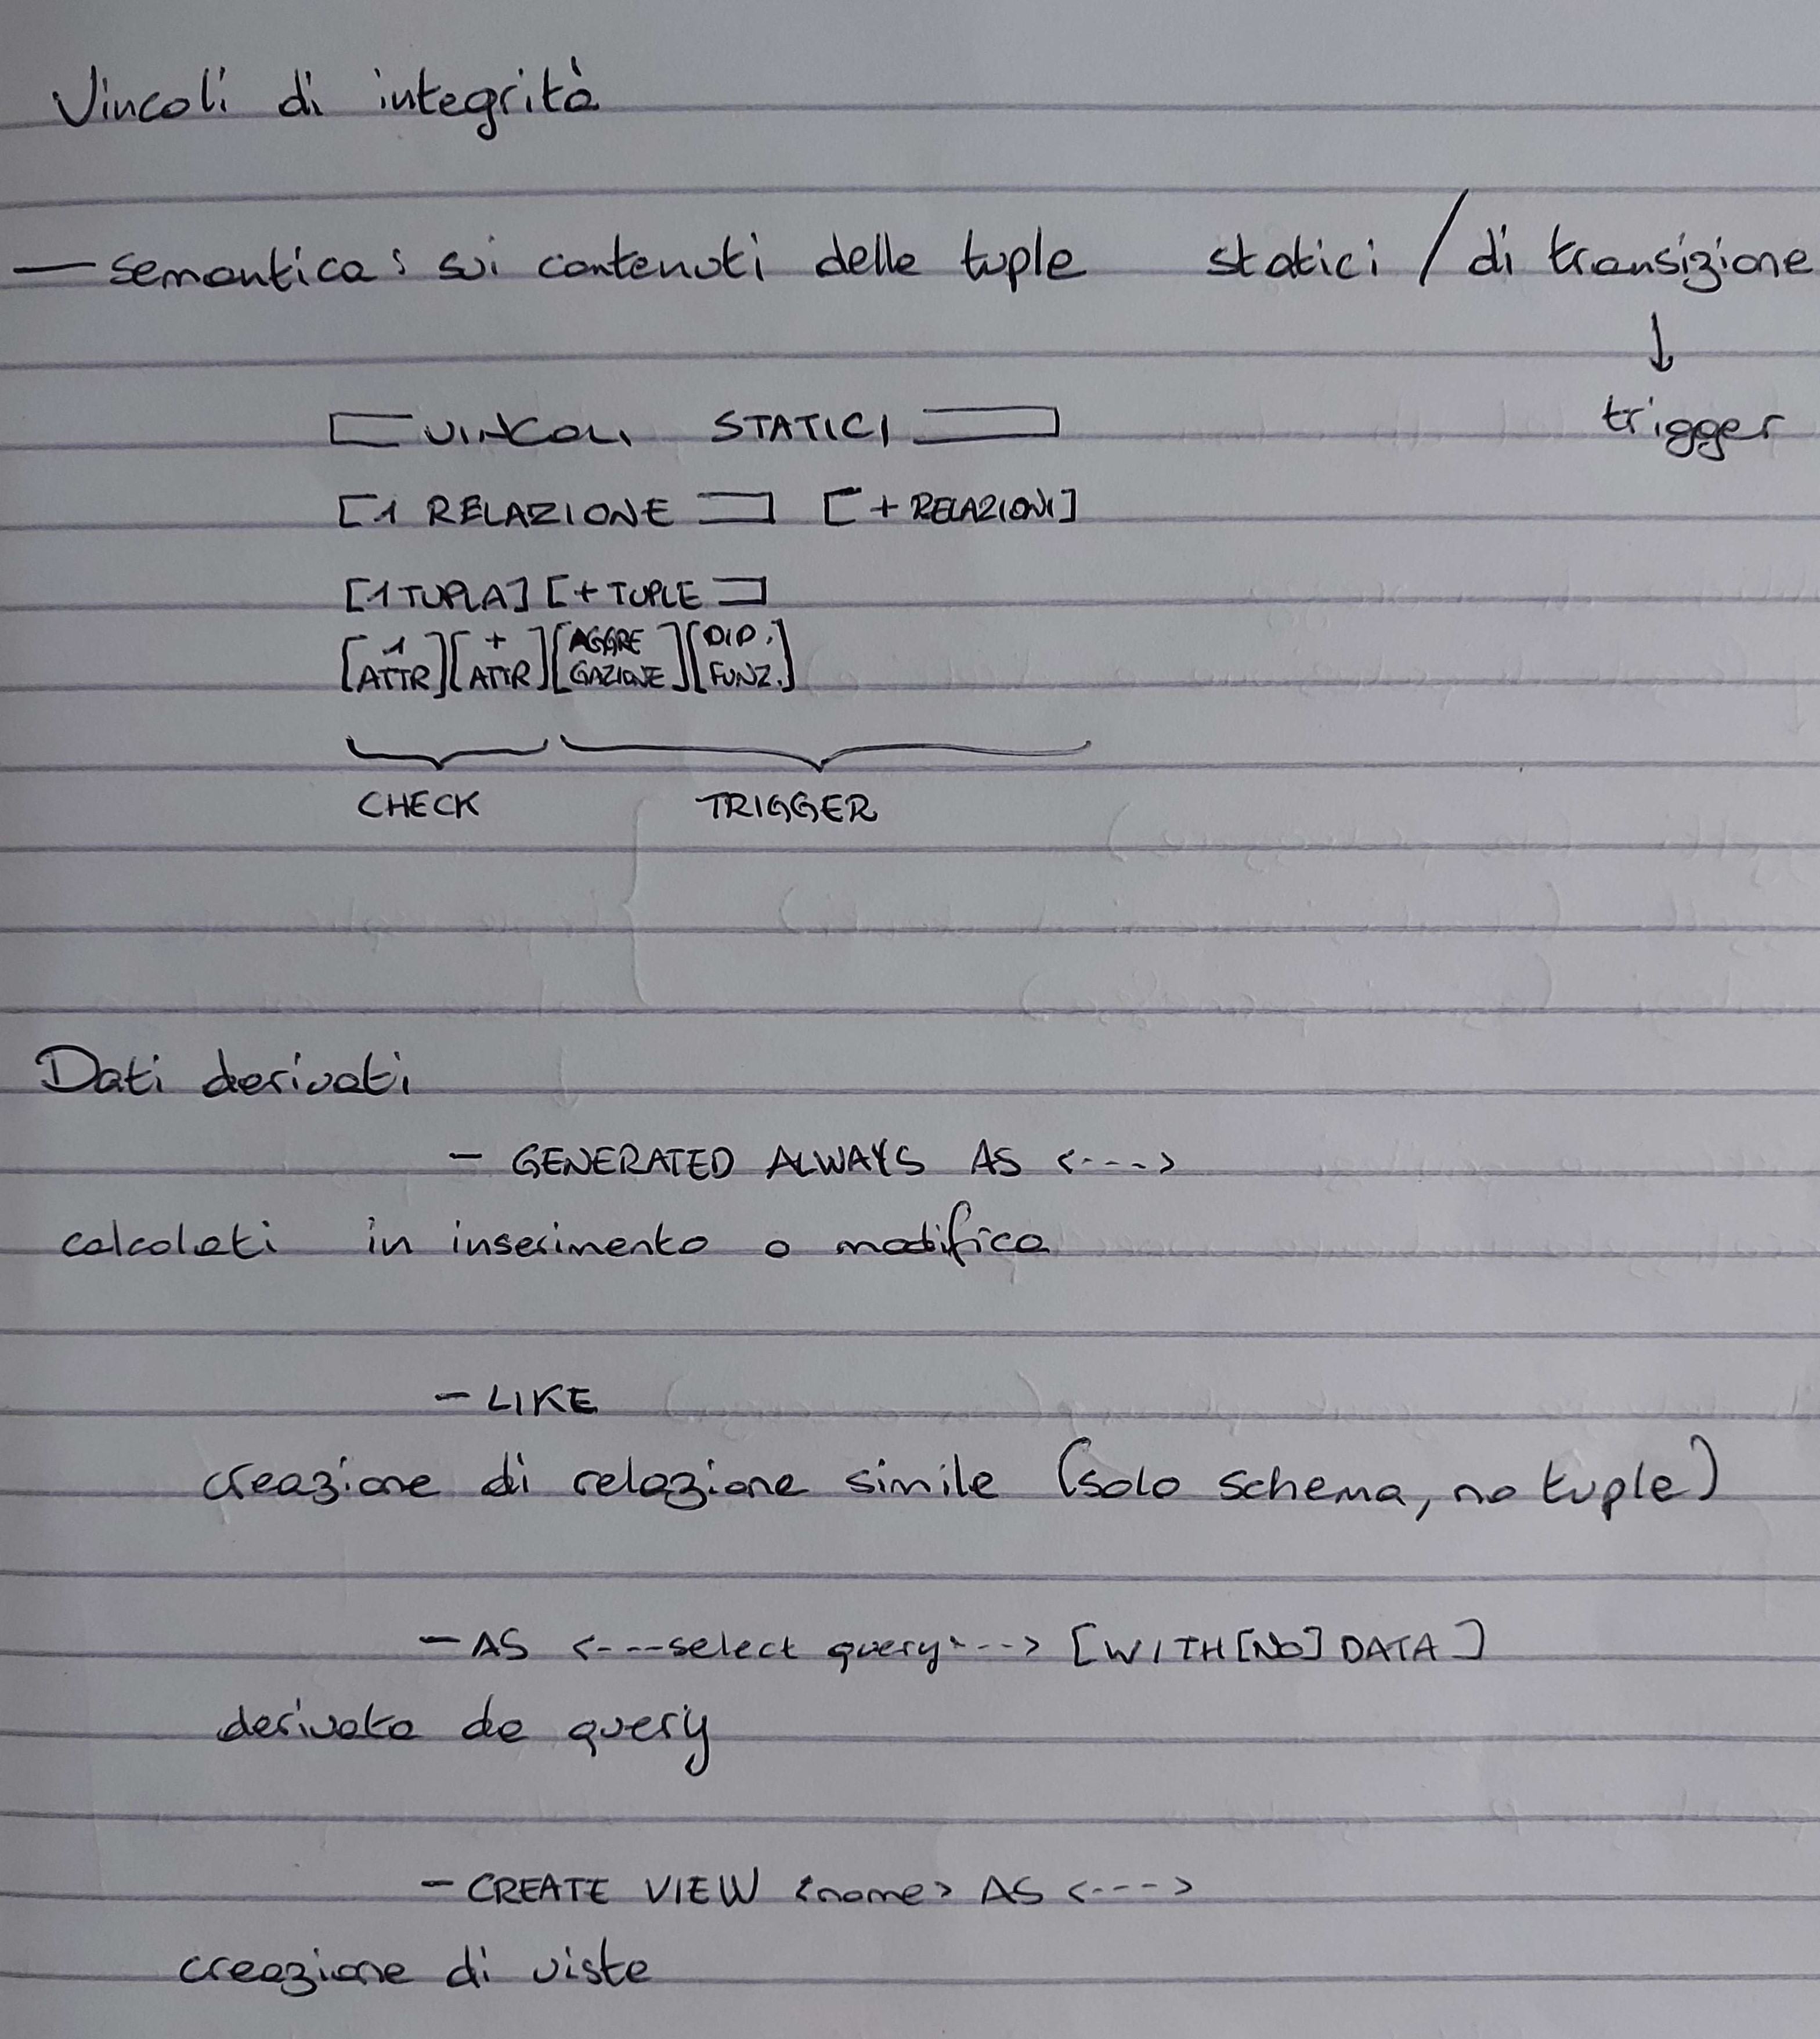 Vincoli di integrità
— semantica: sui contenuti delle tuple statici / di transizione
↓
trigger
[VINCOLI STATICI]
[1 RELAZIONE] [+ RELAZIONI]
[1 TUPLA] [+ TUPLE]
[1 ATTR] [+ ATTR] [AGGREGAZIONE] [DIP. FUNZ.]
CHECK TRIGGER
Dati derivati
- GENERATED ALWAYS AS <---->
calcolati in inserimento o modifica
- LIKE
creazione di relazione simile (solo schema, no tuple)
- AS <----select query----> [WITH[NO] DATA]
derivata da query
- CREATE VIEW <nome> AS <---->
creazione di viste